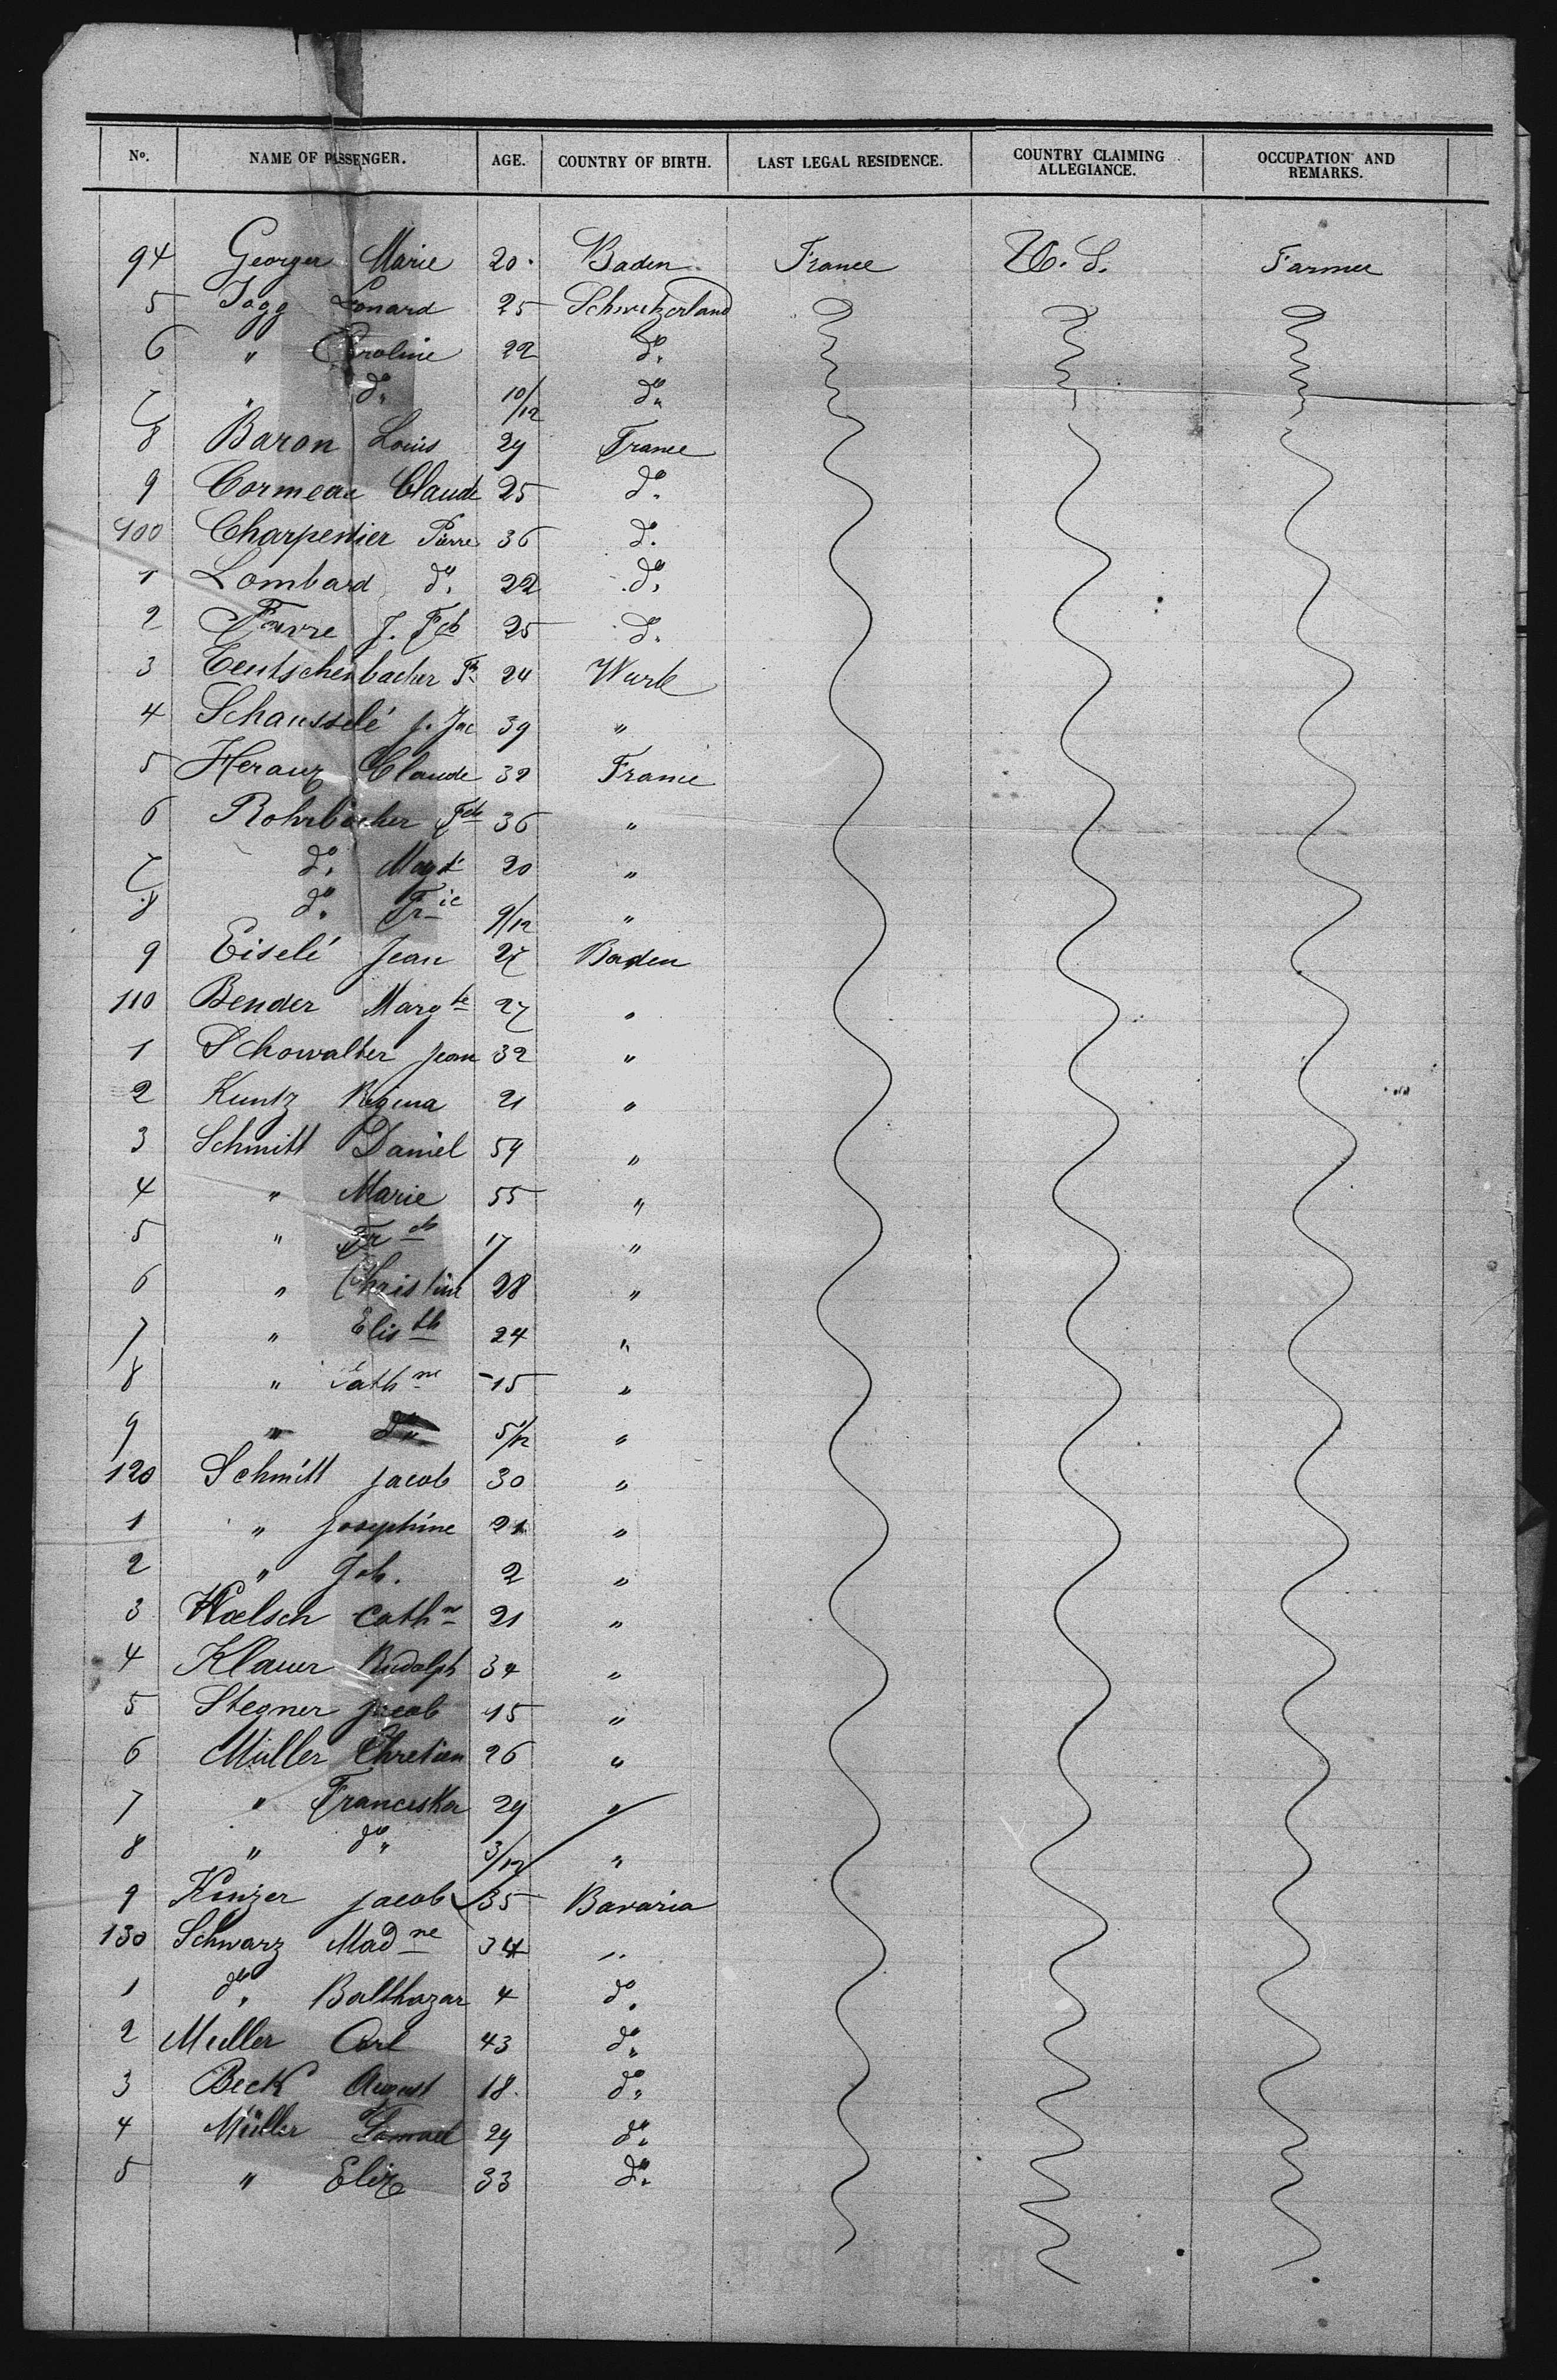 No. NAME OF PASSENGER. AGE. COUNTRY OF BIRTH. LAST LEGAL RESIDENCE. COUNTRY CLAIMING ALLEGIANCE. OCCUPATION AND REMARKS.
94 Georger Marie 20 Baden France U. S. Farmer
5 Jagg Lonard 25 Schwitzerland
6 " Caroline 22 do.
7 " do. 10/12 do.
8 Baron Louis 29 France
9 Cormeau Claude 25 do.
100 Charpentier Pierre 36 do.
1 Lombard do. 22 do.
2 Favre J. Fch 25 do.
3 Teutschenbacher Fr. 24 Wurt
4 Schausselé J. Jac 39 "
5 Heraux Claude 32 France
6 Rohrbacher Fch 36 "
7 do. Magt 20 "
8 do. Fric 9/12 "
9 Eiselé Jean 27 Baden
110 Bender Margte 27 "
1 Schowalter Jean 32 "
2 Kuntz Regina 21 "
3 Schmitt Daniel 59 "
4 " Marie 55 "
5 " Frch 17 "
6 " Christine 28 "
7 " Elisth 24 "
8 " Cathne 15 "
9 " do 5/12 "
120 Schmitt Jacob 30 "
1 " Josephine 21 "
2 " Joh. 2 "
3 Woelsch Cathne 21 "
4 Klauer Rudolph 34 "
5 Stegner Jacob 15 "
6 Müller Chretien 26 "
7 " Franciska 29 "
8 " do. 3/12 "
9 Kinzer Jacob 35 Bavaria
130 Schwarz Madne 34 "
1 do. Balthazar 4 do.
2 Muller Carl 43 do.
3 Beck August 18 do.
4 Müller Samuel 29 do.
5 " Elize 33 do.